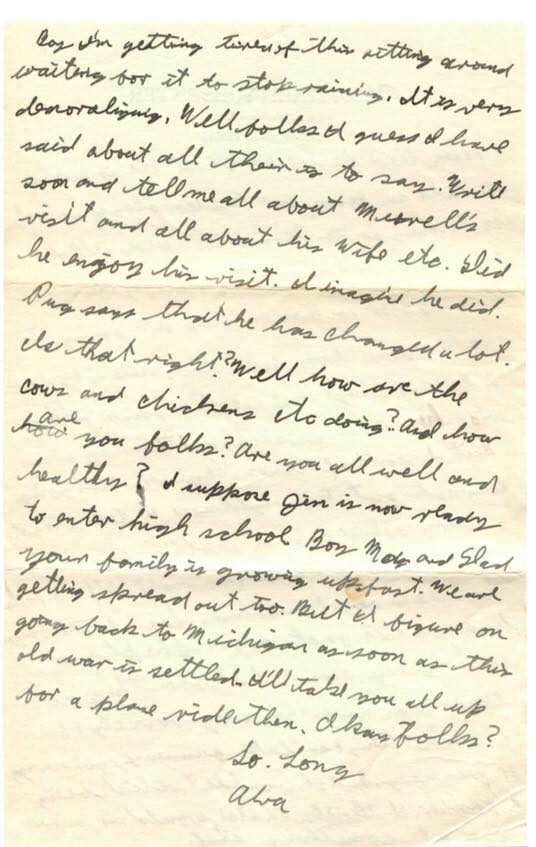 Boy I'm getting tired of this sitting around
waiting for it to stop raining. It is very
demoralizing. Well folks I guess I have
said about all their is to say. Write
soon and tell me all about Murrell's
visit and all about his wife etc. Did
he enjoy his visit. I imagine he did.
Pug says that he has changed a lot.
Is that right? Well how are the
cows and chickens etc doing? And how
are you folks? Are you all well and
healthy? I suppose Jim is now ready
to enter high school. Boy Mac and Glad
your family is growing up fast. We are
getting spread out too. But I figure on
going back to Michigan as soon as this
old war is settled. I'll take you all up
for a plane ride then. Okay folks?
So. Long
Alva